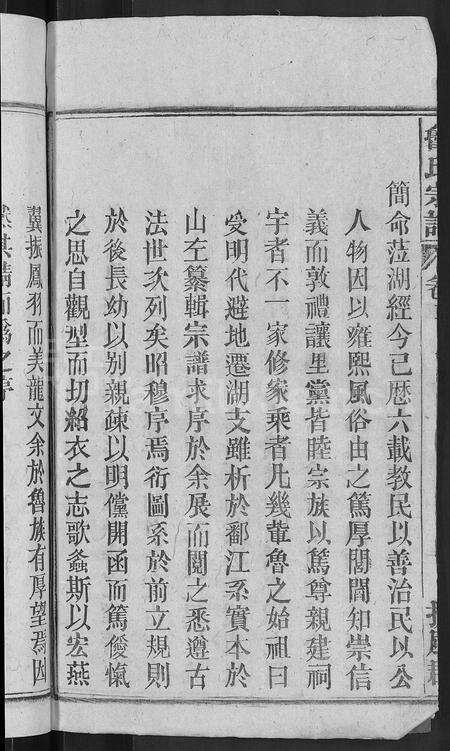 魯氏宗譜
卷
簡命蒞湖經今已歷六載教民以善治民以公
人物因以雍熙風俗由之篤厚閭閻知崇信
義而敦禮讓里黨皆睦宗族以篤尊親建祠
宇者不一家修家乘者凡幾軰魯之始祖曰
受明代避地遷湖支雖析於鄱江系實本於
山左纂輯宗譜求序於余展而閱之悉遵古
法世次列矣昭穆序焉衍圖系於前立規則
於後長幼以别親疎以明儻開函而篤僾愾
之思自觀型而切紹衣之志歌螽斯以宏燕
翼振鳳羽而美龍文余於魯族有厚望焉因
其請而爲之序